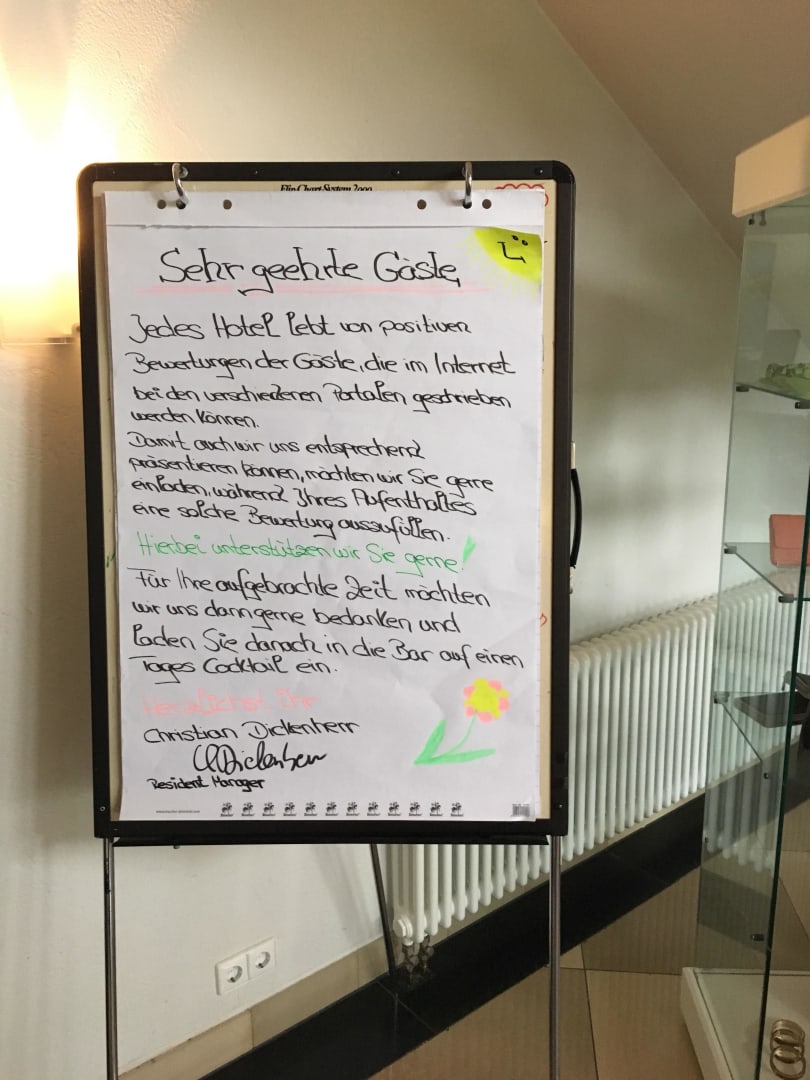 Flip Chart System 2000
Sehr geehrte Gäste,
Jedes Hotel lebt von positiven
Bewertungen der Gäste, die im Internet
bei den verschiedenen Portalen geschrieben
werden können.
Damit auch wir uns entsprechend
präsentieren können, möchten wir Sie gerne
einladen, während Ihres Aufenthaltes
eine solche Bewertung auszufüllen.
Hierbei unterstützen wir Sie gerne!
Für Ihre aufgebrachte Zeit möchten
wir uns dann gerne bedanken und
laden Sie danach in die Bar auf einen
Tages Cocktail ein.
Herzlichst Ihr
Christian Dickenherr
CDickenherr
Resident Manager